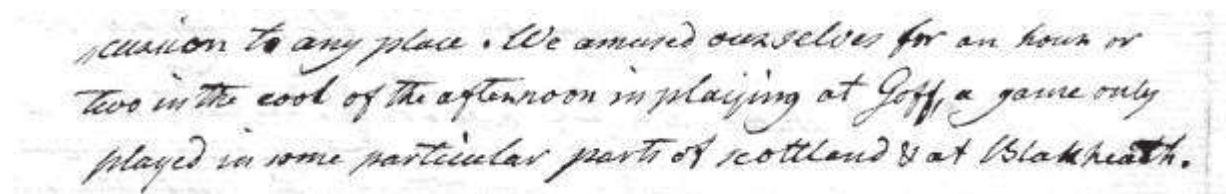 scursion to any place. We amused ourselves for an hour or
two in the cool of the afternoon in plaijing at Goff, a game only
played in some particular parts of scottland & at Blakheath.